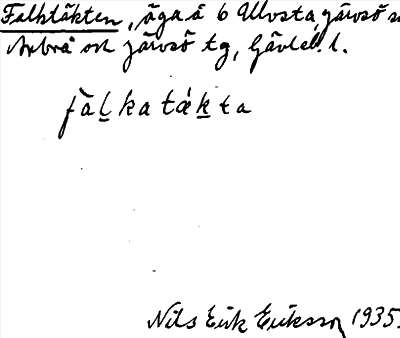 Falktäkten, äga å 6 Ulvsta, Järvsö s
Arbrå och Järvsö tg, Gävleb. l.
fàl̲katák̲ta
Nils Erik Eriksson 1935.